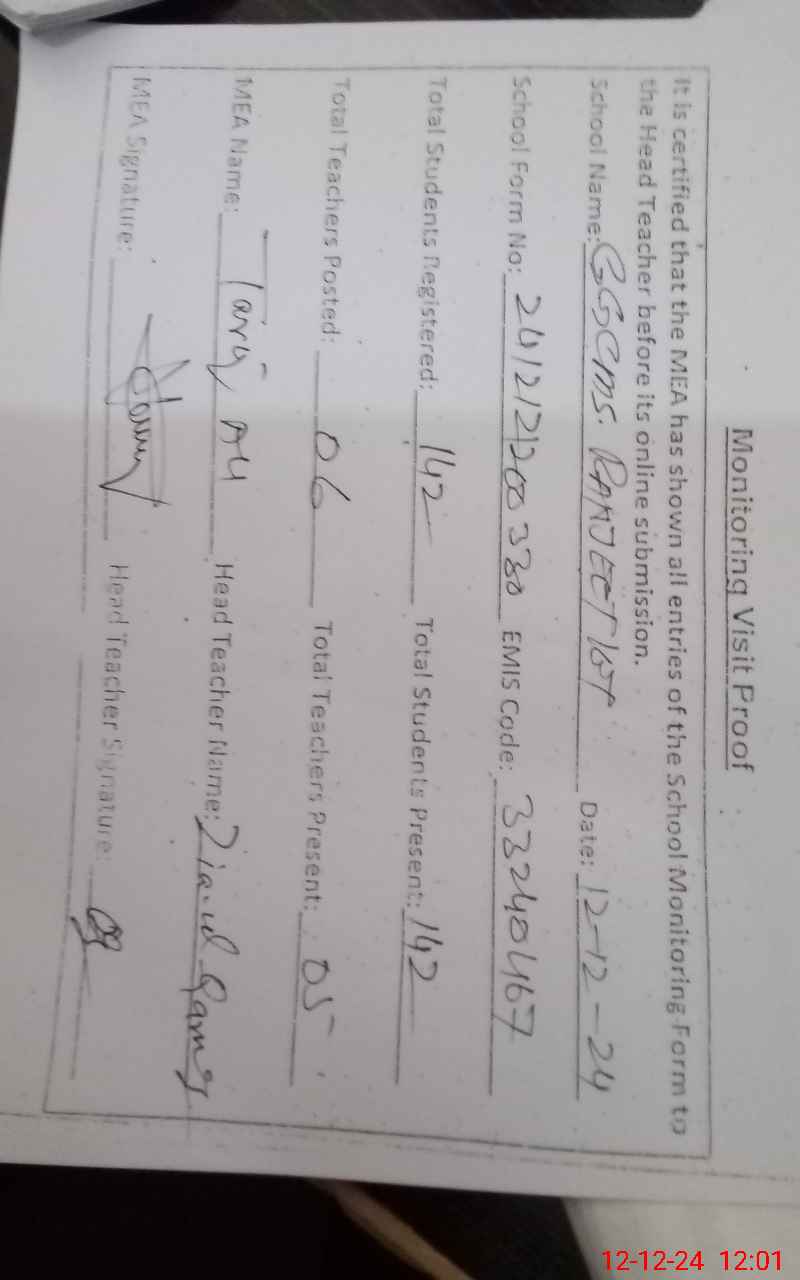 Monitoring Visit Proof
It is certified that the MEA has shown all entries of the School Monitoring Form to
the Head Teacher before its online submission.
School Name: GGCMS. RANJEET KOT Date: 12-12-24
School Form No: 241212200330 EMIS Code: 33240467
Total Students Registered: 142 Total Students Present: 142
Total Teachers Posted: 06 Total Teachers Present: 05
MEA Name: Tariq Ali Head Teacher Name: Zia-ul
MEA Signature: Head Teacher Signature:
12-12-24 12:01